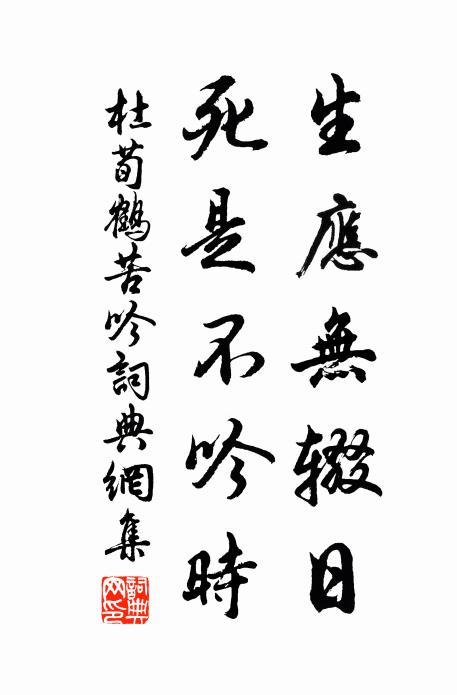 生應無辍日
死是不吟時
杜荀鶴苦吟詞典網集
詞典網印